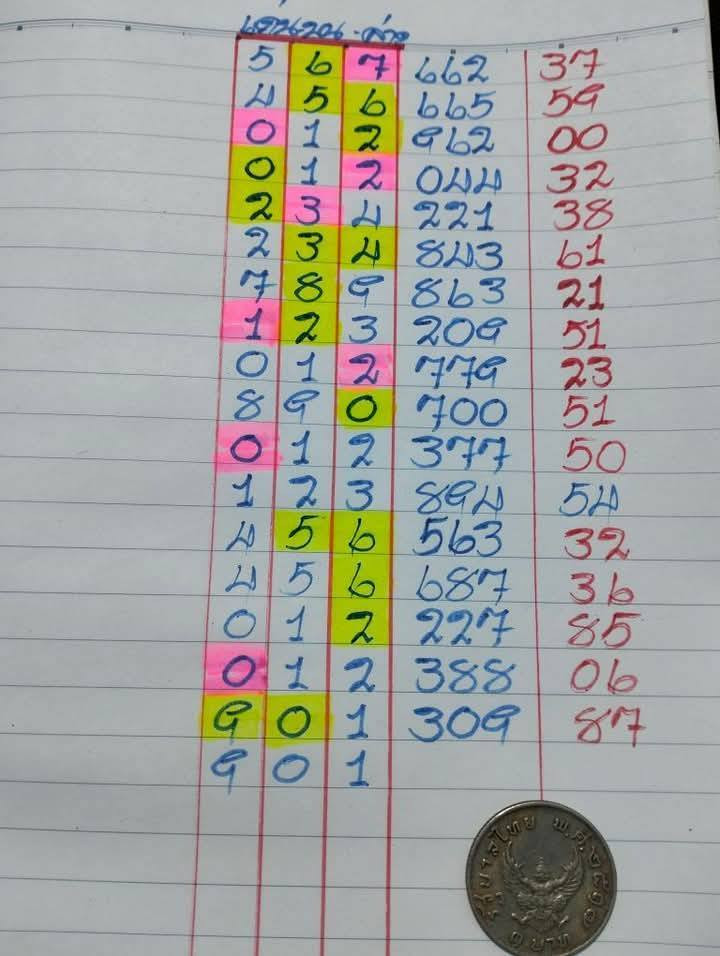 เด่นบน - ล่าง
5 6 7 662 37
4 5 6 665 59
0 1 2 962 00
0 1 2 044 32
2 3 4 221 38
2 3 4 843 61
7 8 9 863 21
1 2 3 209 51
0 1 2 779 23
8 9 0 700 51
0 1 2 377 50
1 2 3 894 54
4 5 6 563 32
4 5 6 687 36
0 1 2 227 85
0 1 2 388 06
9 0 1 309 87
9 0 1
รัฐบาลไทย พ.ศ.๒๕๑๗
๑ บาท